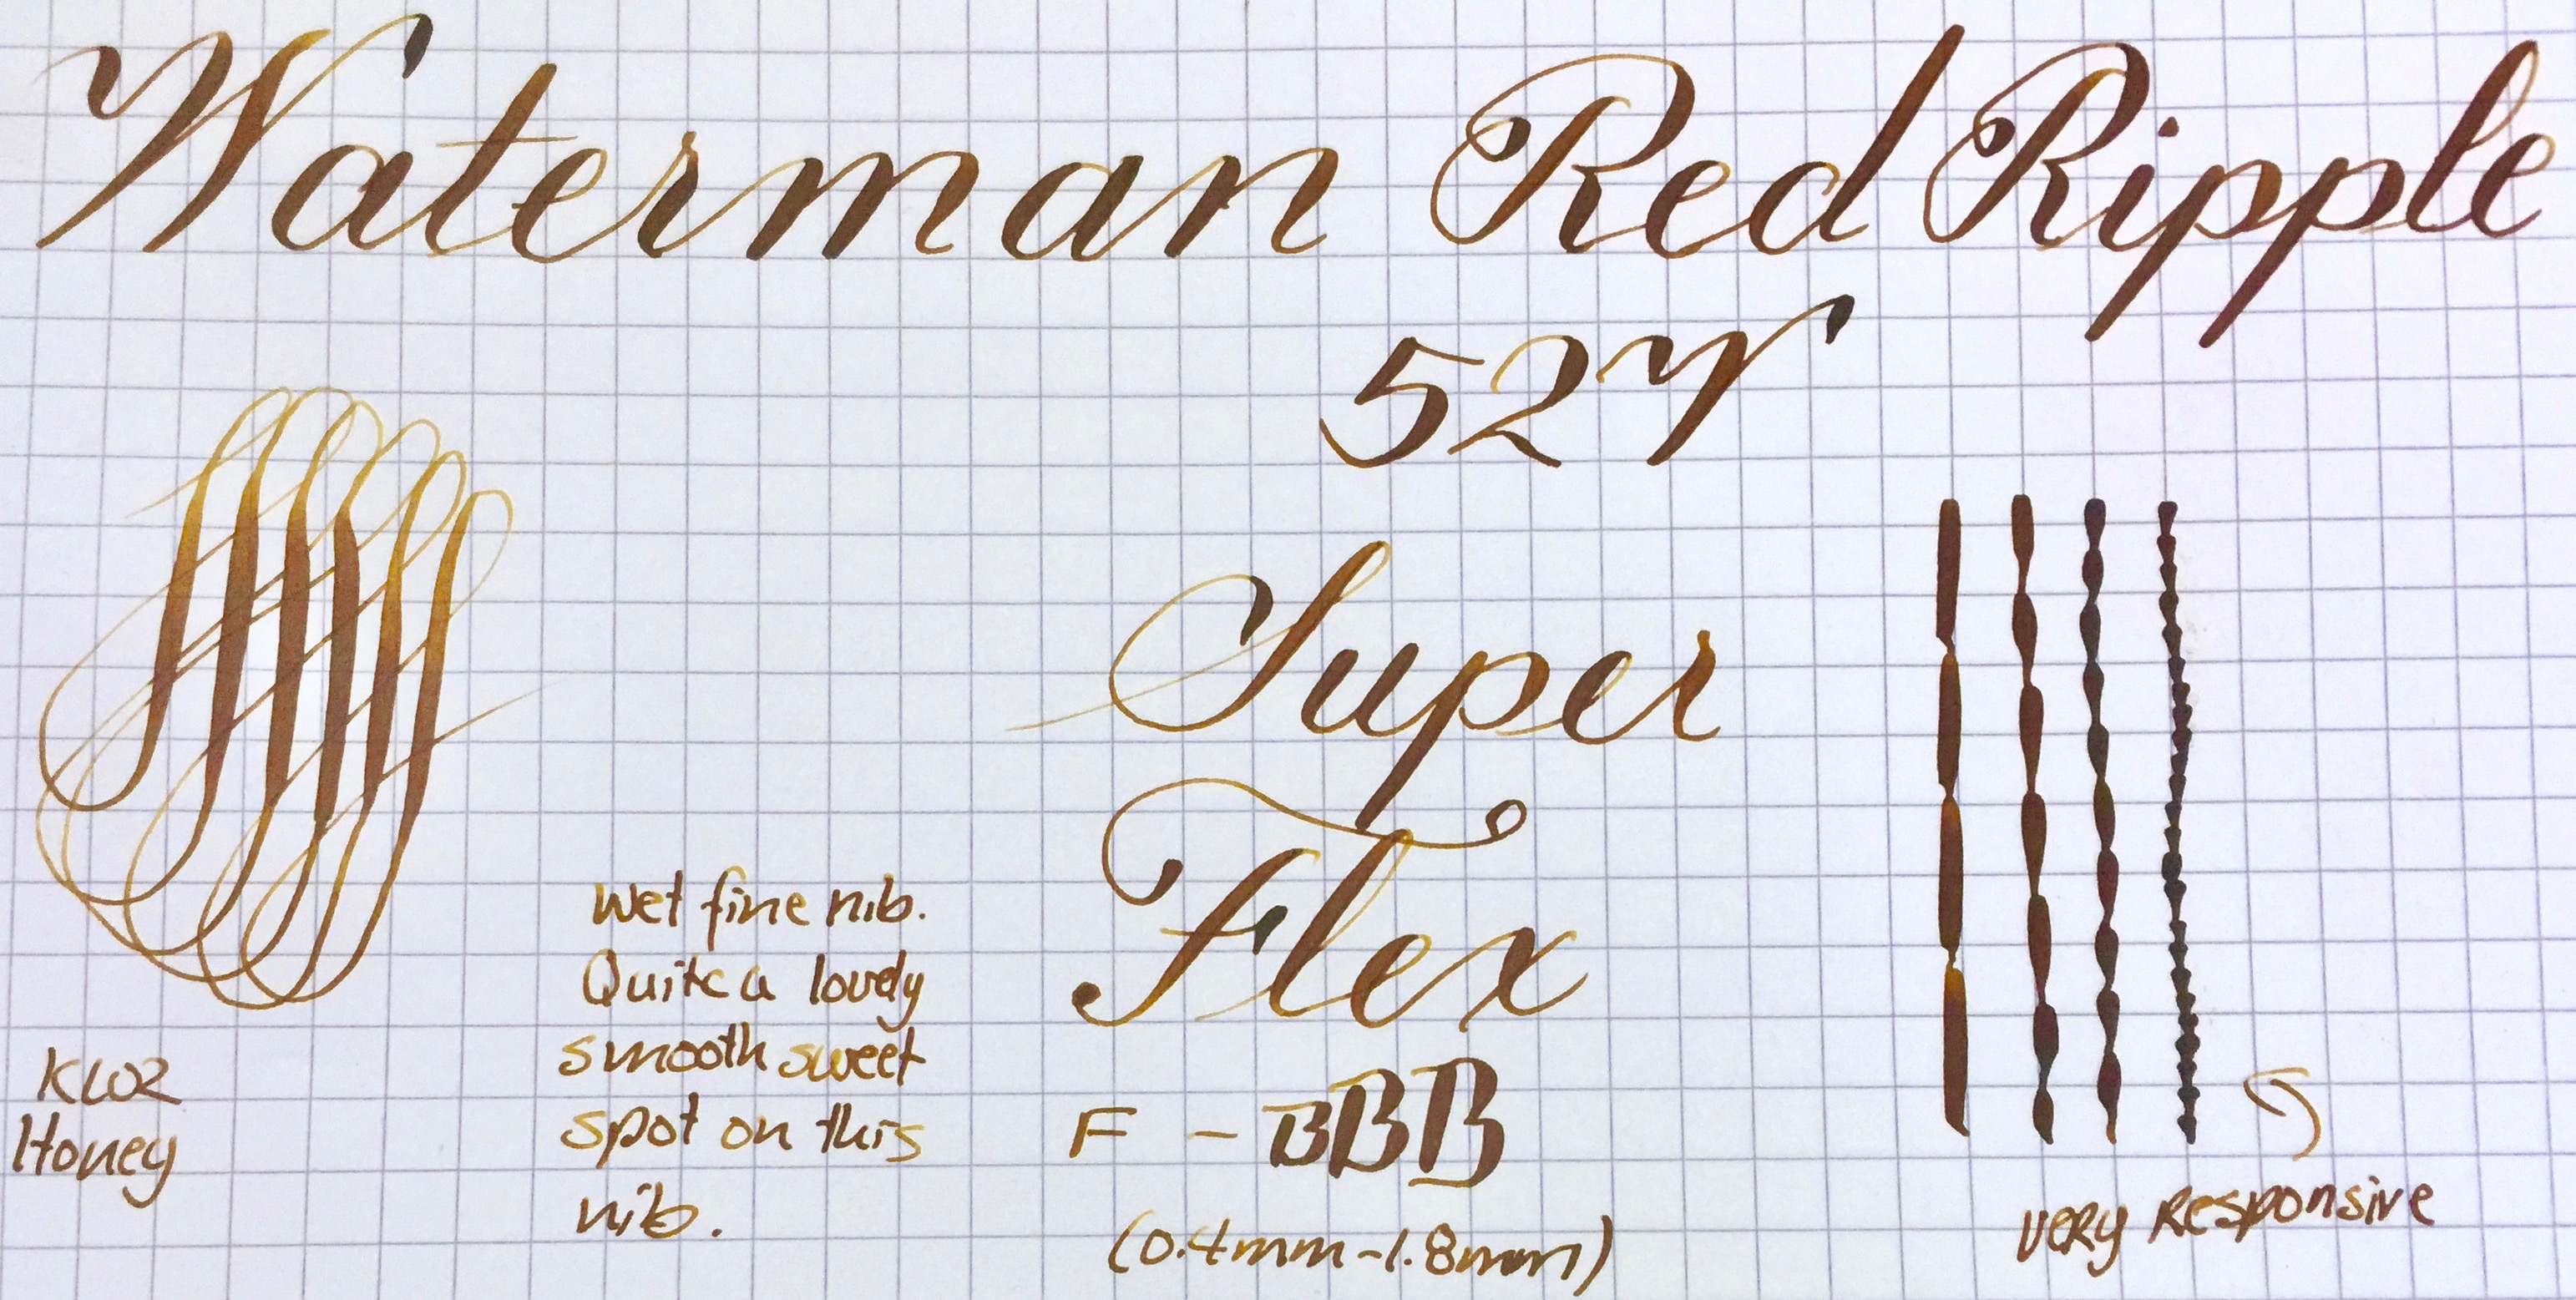 Waterman Red Ripple
52V
Super
Flex
F - BBB
(0.4mm-1.8mm)
wet fine nib.
Quite a lovely
smooth sweet
spot on this
nib.
KWZ
Honey
very responsive